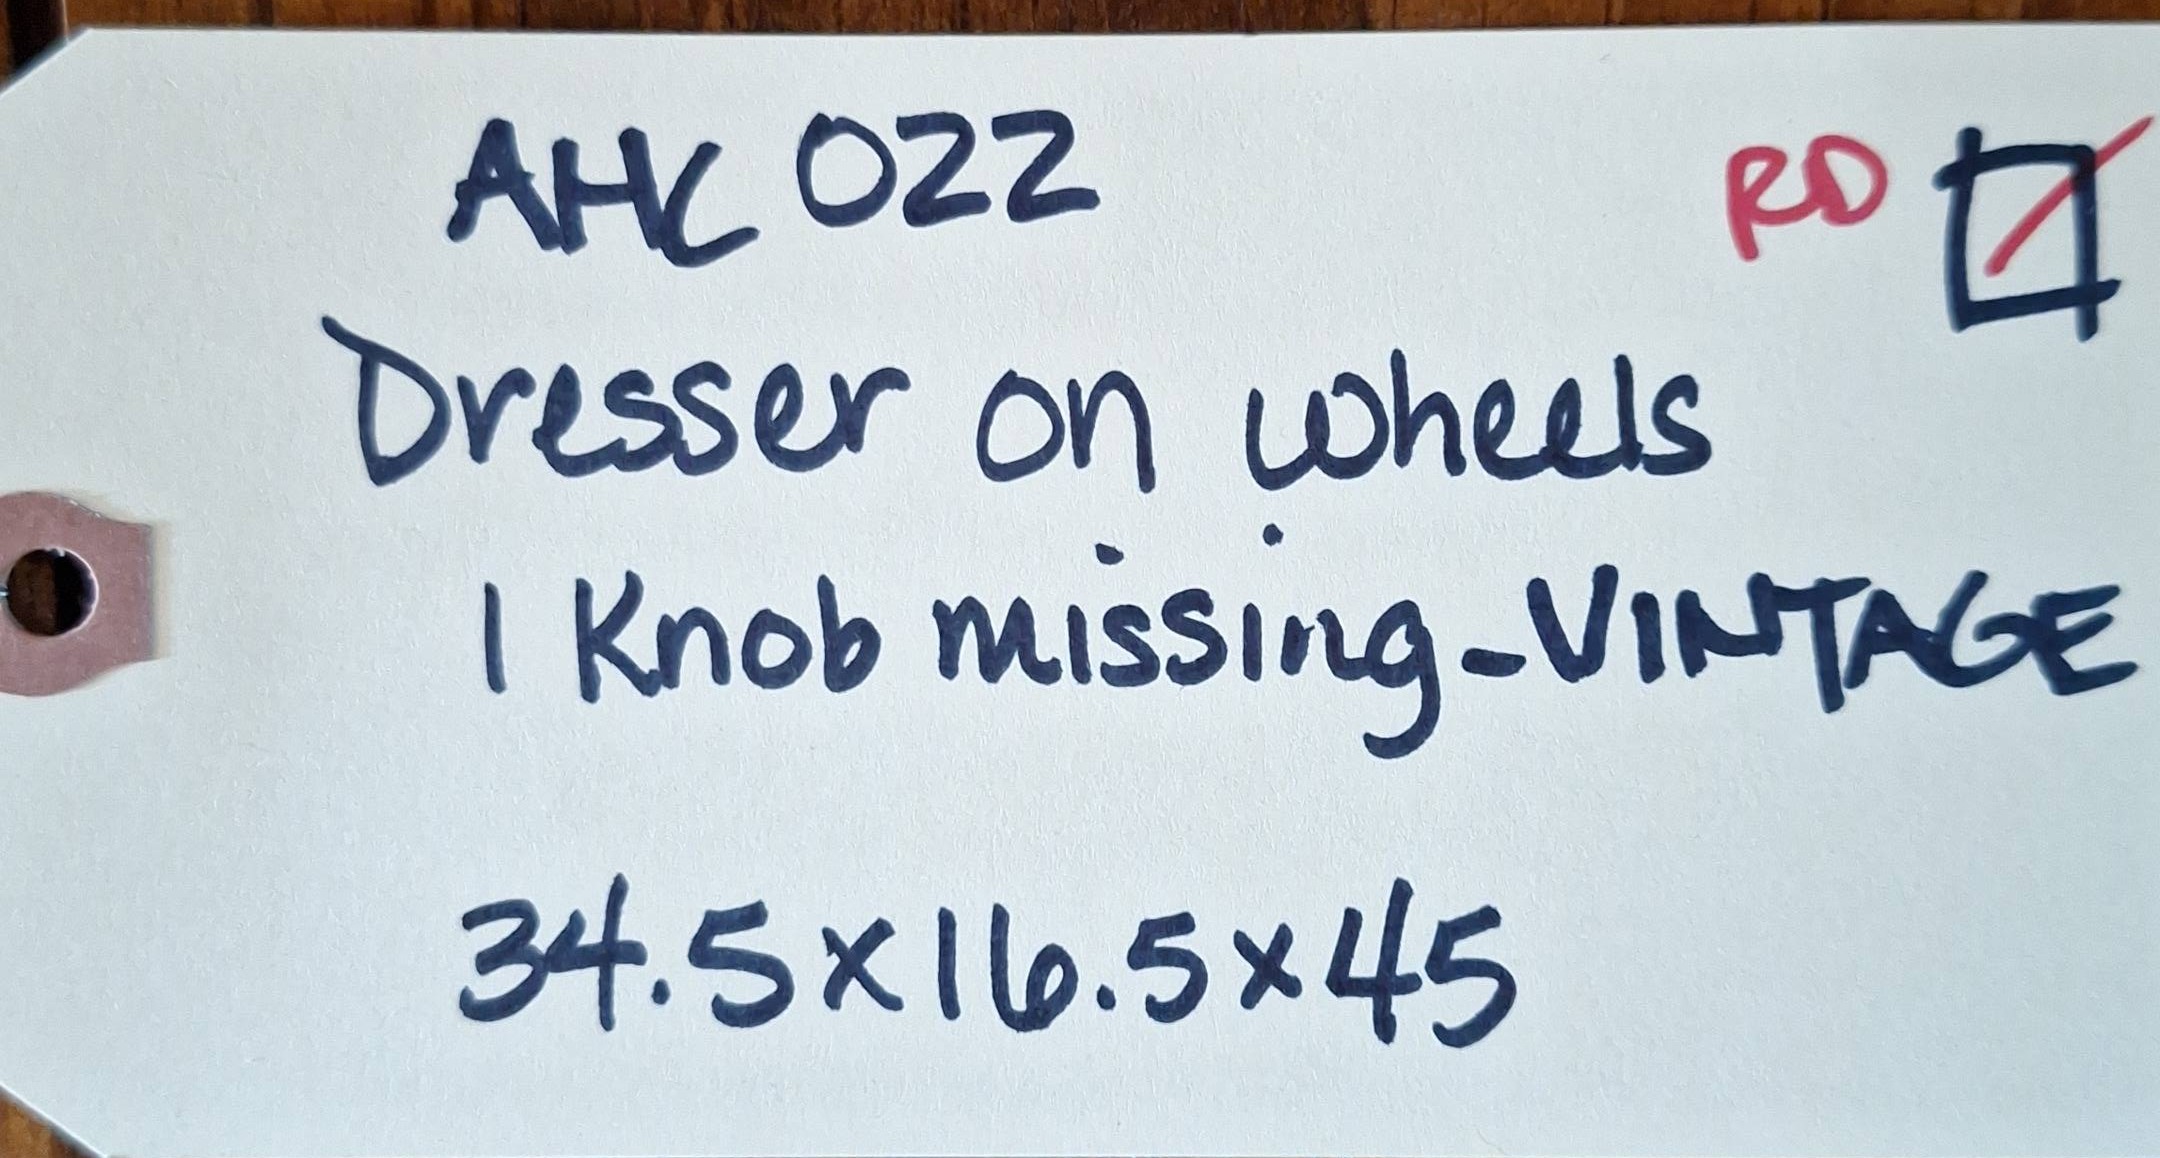 AHC 022 RD
Dresser on wheels
1 Knob missing - VINTAGE
34.5x16.5x45